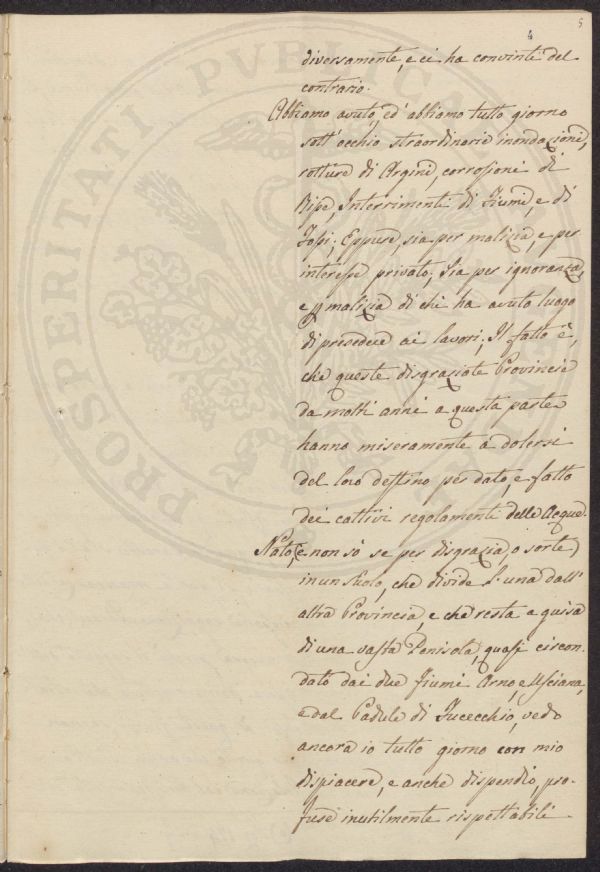 5
4
diversamente, e ci ha convinti del
contrario.
Abbiamo avuto, ed' abbiamo tutto giorno
sott' occhio straordinarie inondazioni,
rotture di Argini, corrosioni di
Ripe, Interrimenti di Fiumi, e di
Fossi; Eppure, sia per malizia, e per
interesse privato; Sia per ignoranza,
e p malizia di chi ha avuto luogo
di presedere ai lavori; Il fatto è,
che queste disgraziate Provincie
da molti anni a questa parte
hanno miseramente a dolersi
del loro destino perdato, e fatto
dei cattivi regolamenti delle Acque.
Nato, (e non sò se per disgrazia, o sorte)
in un suolo, che divide l' una dall'
altra Provincia, e che resta a guisa
di una vasta Penisola, quasi circon-
dato dai due Fiumi Arno, e Usciana,
e dal Padule di Fucecchio, vedo
ancora io tutto giorno con mio
dispiacere, e anche dispendio, pro-
fuse inutilmente rispettabili
PROSPERITATI PVBLICAE